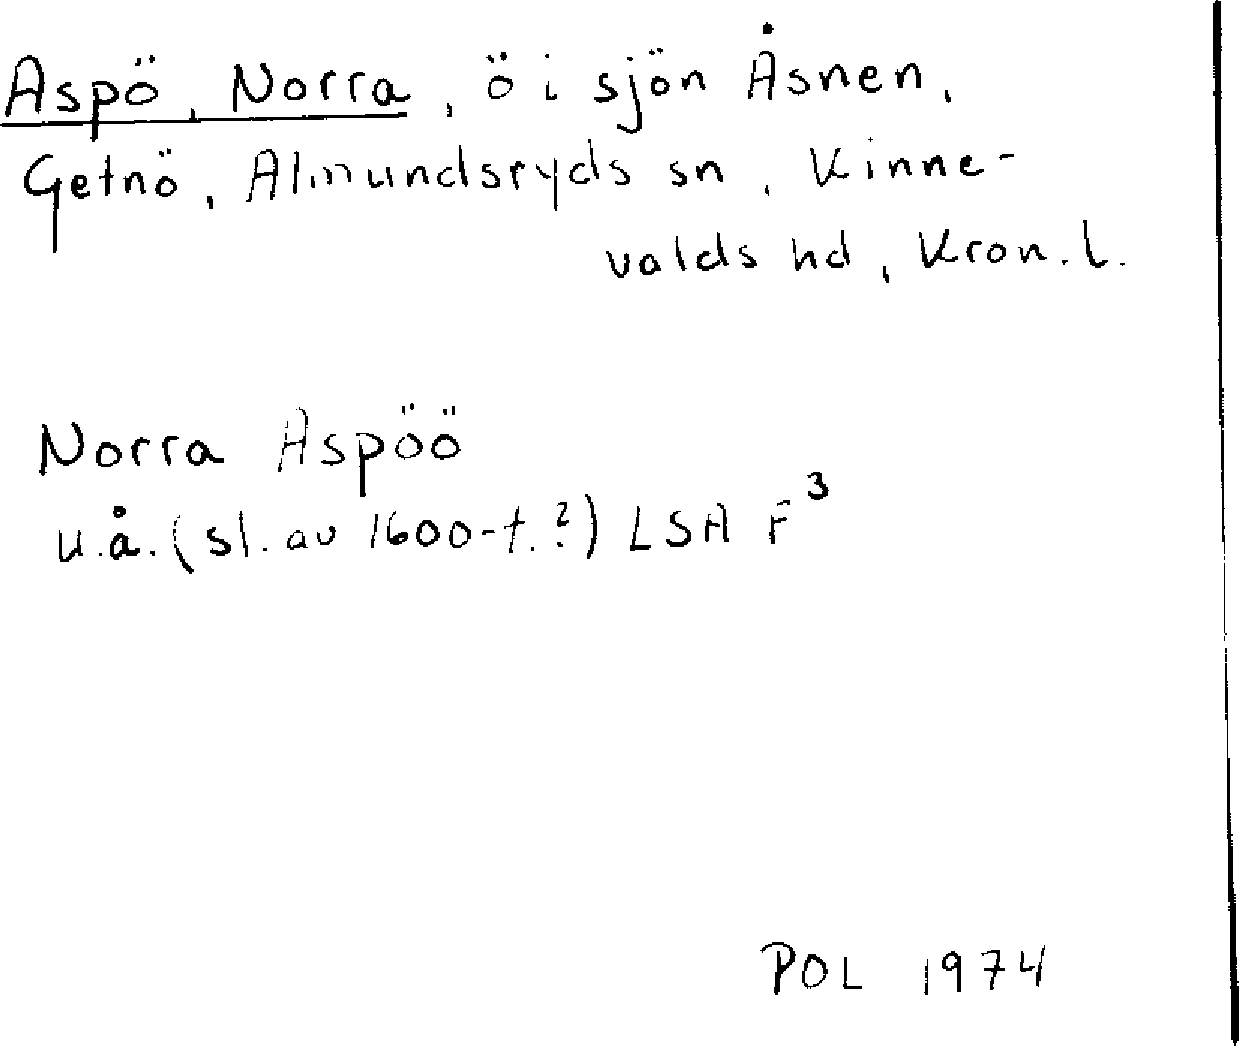 Aspö, Norra, ö i sjön Åsnen,
Getnö, Almundsryds sn, Kinne-
valds hd, Kron. l.
Norra Aspöö
u.å. (sl. av 1600-t.?) LSA F³
POL 1974